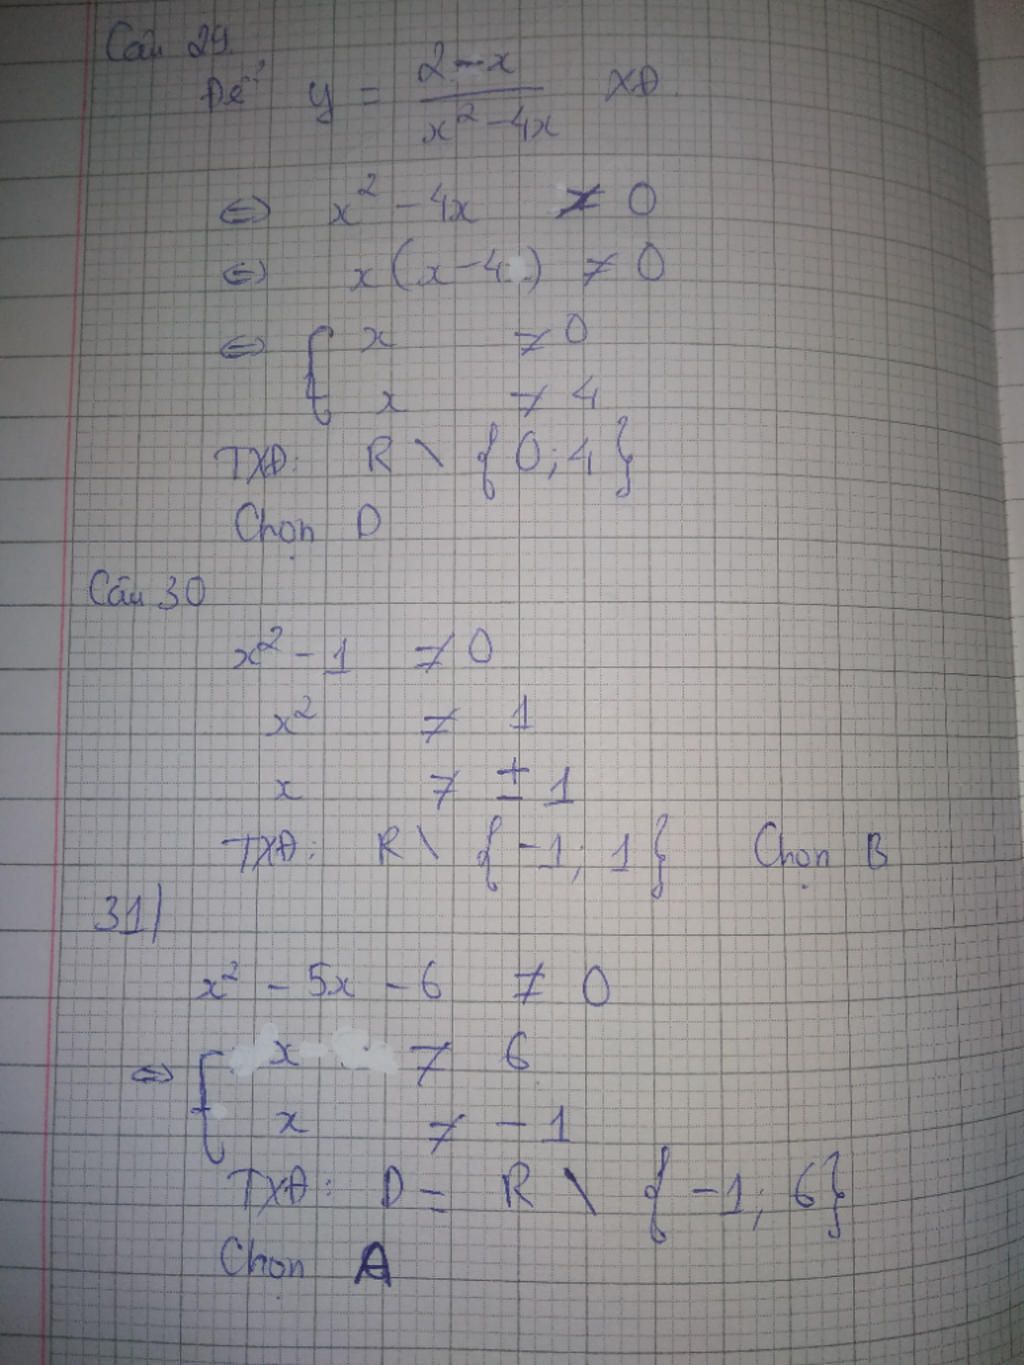 Câu 29
Để y = \frac{2-x}{x^2-4x} XĐ.
⇔ x² - 4x ≠ 0
⇔ x(x-4) ≠ 0
⇔ { x ≠ 0
x ≠ 4
TXĐ: R \ {0; 4}
Chọn D
Câu 30
x² - 1 ≠ 0
x² ≠ 1
x ≠ ± 1
TXĐ: R \ {-1; 1} Chọn B
31)
x² - 5x - 6 ≠ 0
⇔ { x ≠ 6
x ≠ -1
TXĐ: D = R \ {-1; 6}
Chọn A